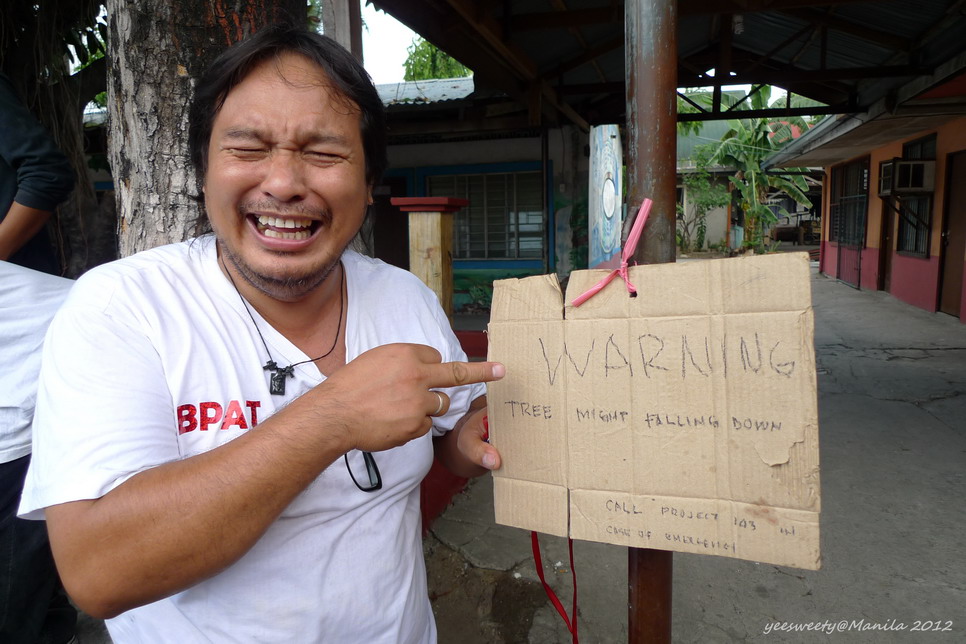 BPAT
WARNING
TREE MIGHT FALLING DOWN
CALL PROJECT 143 IN
CASE OF EMERGENCY
yeesweety@Manila 2012